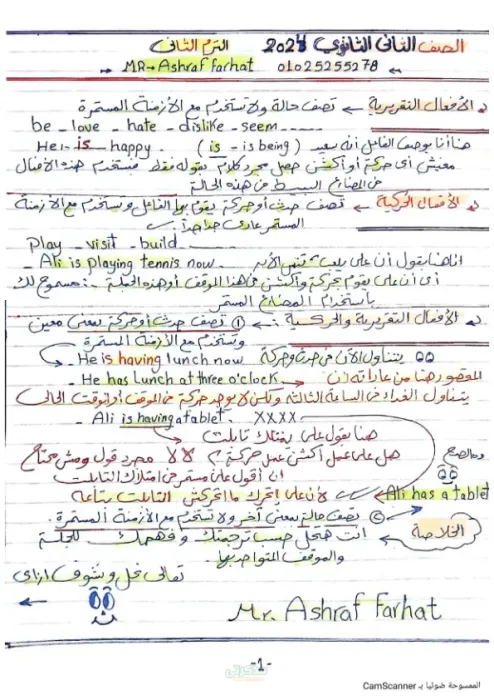 الصف الثانى الثانوي 2024 الترم الثانى
MR. Ashraf farhat 01025255278
الأفعال التقريرية ← تصف حالة ولا تستخدم مع الأزمنة المستمرة
be - love - hate - dislike - seem
He :- is happy. (is - is being) هنا أنا بوصف الفاعل أنه سعيد
معنديش أى حركة أو أكشن حصل مجرد كلام بقوله فقط فنستخدم هذه الأفعال
فى المضارع البسيط فى هذه الحالة
الأفعال الحركية ← تصف حدث أو حركة يقوم بها الفاعل وتستخدم مع الأزمنة
المستمر عادى جداً
Play - visit - build
- Ali is playing tennis now. انا هنا بقول أن على يلعب تنس الأن
أى أن على يقوم بحركة وأكشن فى هذا الموقف أو هذه الجملة :. مسموح لك
باستخدام المضارع المستمر
الأفعال التقريرية والحركية :- ① تصف حدث أو حركة بمعنى معين
وتستخدم مع الأزمنة المستمرة
- He is having lunch now يتناول الأن فى حدث وحركة
- He has lunch at three o'clock المقصود هنا من عاداته أن
يتناول الغداء فى الساعة الثالثة ولكن لا يوجد حركة فى الموقف أو الوقت الحالى
- Ali is having a tablet. XXXX
هنا بقول على يمتلك تابلت
هل على عمل أكشن عمل حركة؟ لا لا مجرد قول ومش محتاج
ان أقول على مستمر فى امتلاك التابلت
والصح
لأن على اتحرك ما اتحركش التابلت بتاعه
Ali has a tablet
② تصف حالة بمعنى آخر ولا تستخدم مع الأزمنة المستمرة.
الخلاصة
انت هتحل حسب ترجمتك وفهمك للجملة
والموقف المتواجد بها.
تعالى نحل ونشوف ازاى
Mr. Ashraf Farhat
-1-
الممسوحة ضوئيا بـ CamScanner